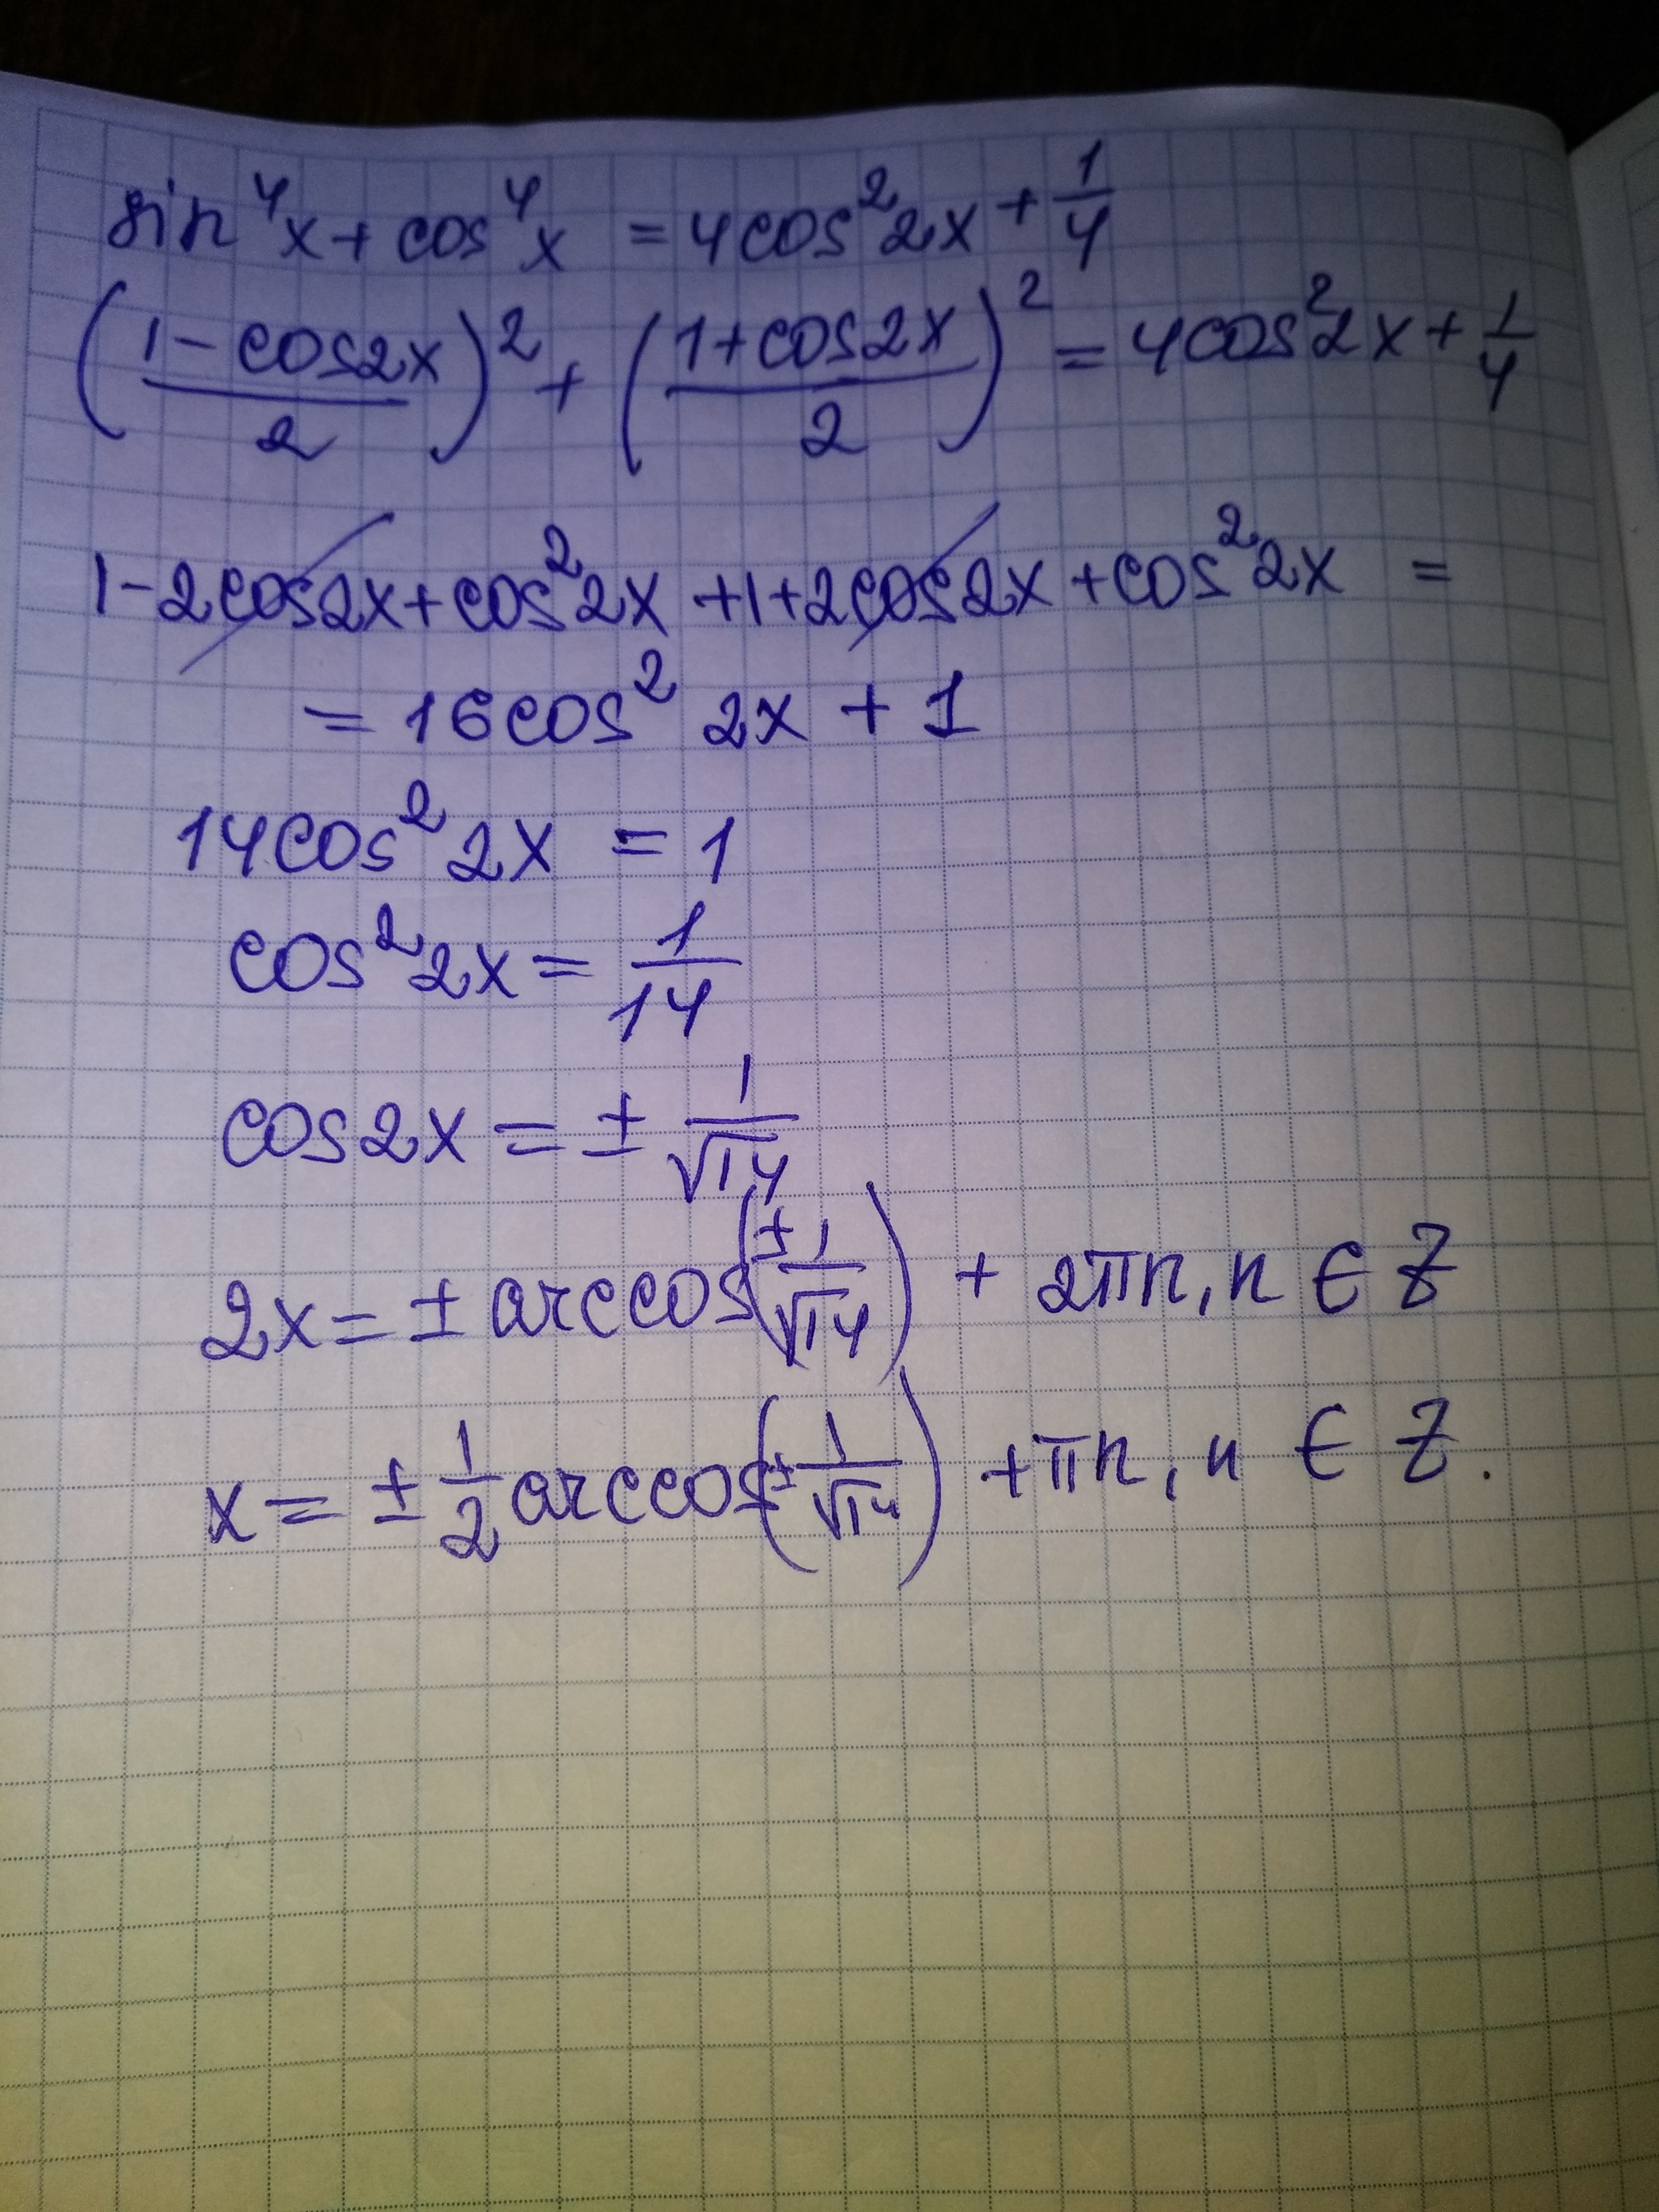 sin⁴x + cos⁴x = 4cos²2x + 1/4
((1-cos2x)/2)² + ((1+cos2x)/2)² = 4cos²2x + 1/4
1-2cos2x+cos²2x+1+2cos2x+cos²2x =
= 16cos²2x + 1
14cos²2x = 1
cos²2x = 1/14
cos2x = ± 1/√14
2x = ± arccos(± 1/√14) + 2πn, n ∈ Z
x = ± 1/2 arccos(± 1/√14) + πn, n ∈ Z.